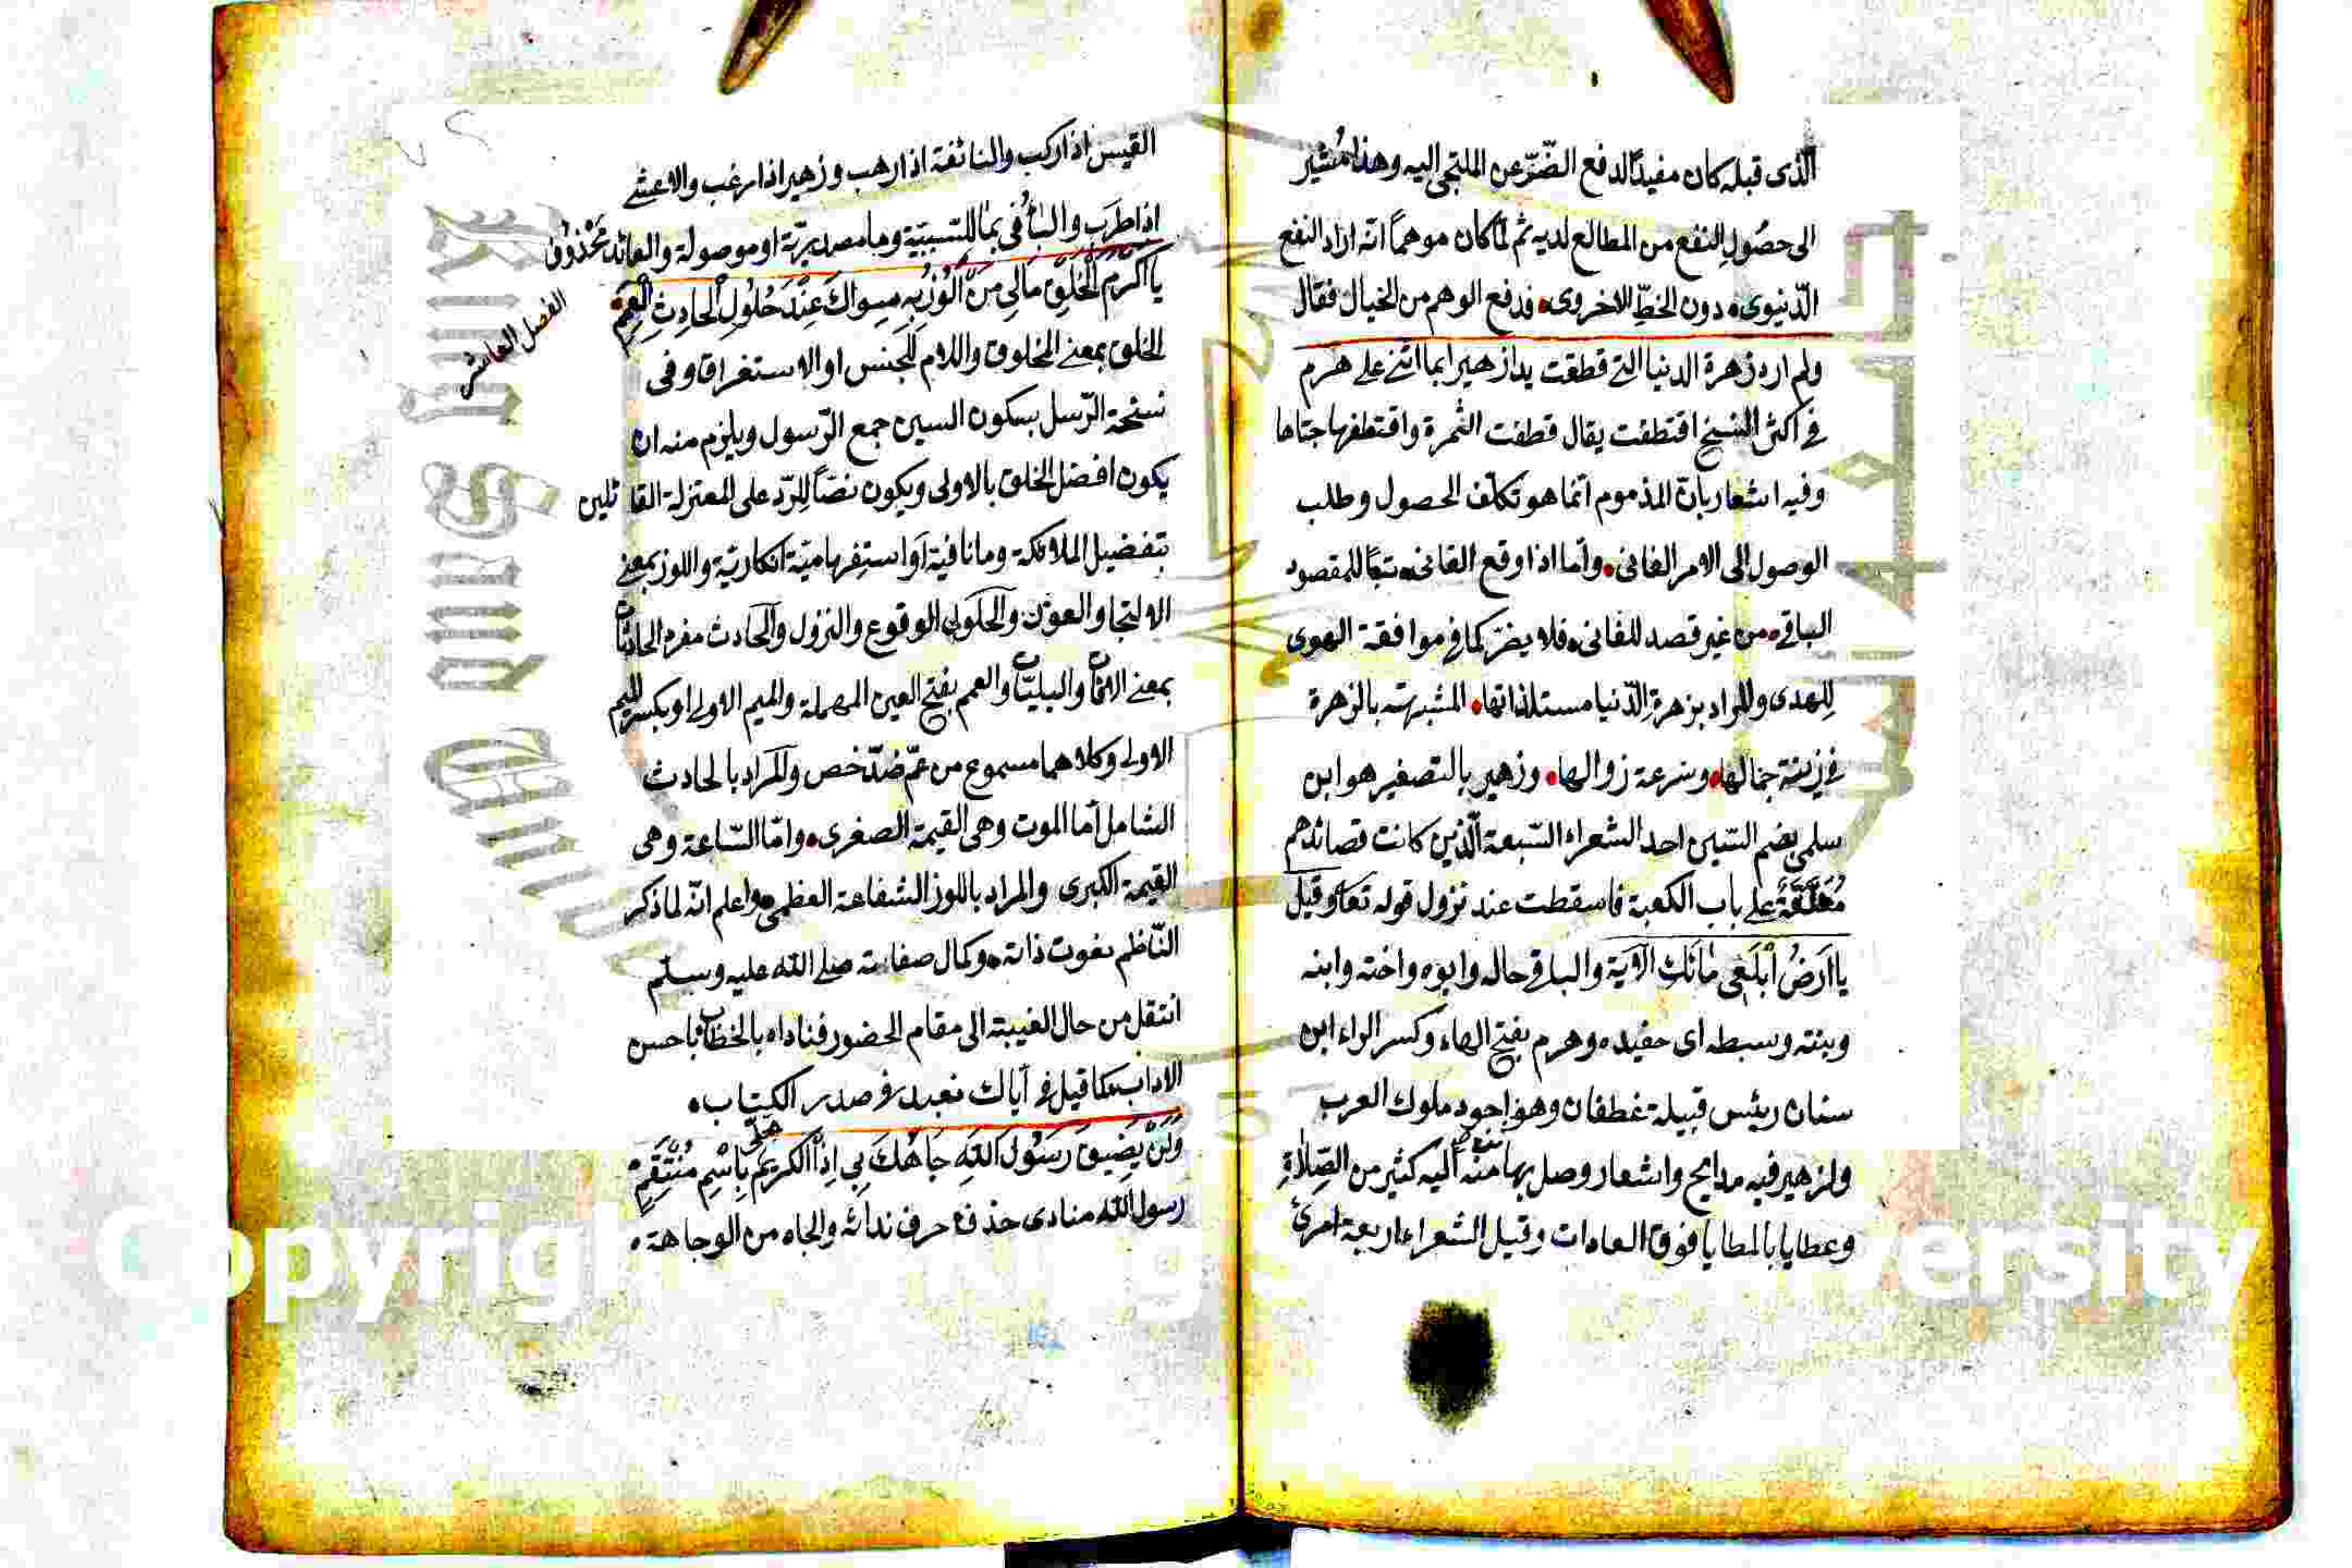 الذى قبله كان مفيدًا لدفع الضّرّ عن الملتجى اليه وهذا مُشير
الى حصُولِ النفع من المطالع لديه ثم لمّا كان موهمًا انّه اراد النفع
الدّنيوى دون الخطِّ الاخروى فدفع الوهم من الخيال فقال
ولم ارد زهرة الدنيا التى قطفت يدا زهير بما اثنى على هرم
فى اكثر النسخ اقتطفت يقال قطفت الثمرة واقتطفها جتاها
وفيه اشعار بانّ المذموم انما هو تكلّف الحصول وطلب
الوصول الى الامر الفانى واما اذا وقع الفانى تبعًا للمقصود
الباقى من غير قصد للفانى فلا يضرّ كما فى موافقة الهوى
لِلهدى والمراد بزهرةِ الدّنيا مستلذاتها المشبهة بالزهرة
فى زينة جمالها وسرعة زوالها وزهير بالتصغير هو ابن
سلمى بضم السّين احد الشعراء السّبعة الّذين كانت قصائدهم
مُعَلَّقَةً على باب الكعبة فاسقطت عند نزول قوله تعا وقيل
يا ارضُ ابْلَعِى مائك الآية والباقى حاله وابوه واخته وابنه
وبنته وسبطه اى حفيده وهرم بفتح الهاء وكسر الراء ابن
سنان رئيس قبيلة غطفان وهو اجود ملوك العرب
ولزهير فيه مدايح واشعار وصل بها منه اليه كثير من الصِّلاةِ
وعطايا بالمطايا فوق العادات وقيل الشعراء اربعة امرئ
القيس اذا ركب والنائفة اذا رهب وزهير اذا رغب والاعشى
اذا طرب والباءُ فى بما للسّببيّة وما مصدريّة او موصولة والعائد محْذوْفٌ
يا اَكْرَمَ الْخَلْقِ مَالِى مَنْ اَلُوْذُ بِهِ سِواكَ عِنْدَ حُلُوْلِ الْحادِثِ الْعَمَمِ
الفصل العاشر
الخلق بمعنى المخلوق واللام للجنس او الاستغراق وفى
نسخة الرّسل بسكون السين جمع الرّسول ويلزم منه ان
يكون افضل الخلق بالاولى ويكون نصًّا للِرّد على المعتزلة القائلين
بتفضيل الملائكة وما نافية او استفهاميّة انكاريّة واللوز بمعنى
الالتجا والعون والحلول الوقوع والنزول والحادث مفرد الحادثات
بمعنى الآفات والبليّات والعمم بفتح العين المهملة والميم الاولى او بكسر الميم
الاولى وكلاهما مسموع من عمّ ضدّ خص والمراد بالحادث
الشامل اما الموت وهى القيمة الصغرى وامّا السّاعة وهى
القيمة الكبرى والمراد باللوز الشفاعة العظمى واعلم انّه لما ذكر
النّاظم نعوت ذاته وكمال صفاته صلى الله عليه وسلّم
انتقل من حال الغيبة الى مقام الحضور فناداه بالخطاب باحسن
الاداب كما قيل فى اياك نعبد فى صدر الكتاب
وَلَنْ يَضِيقَ رَسُولَ اللهِ جَاهُكَ بِى اِذَا الْكَرِيمُ تحلى بِاسْمِ مُنْتَقِمِ
رسول الله منادى حذف حرف ندائه والجاه من الوجاهة